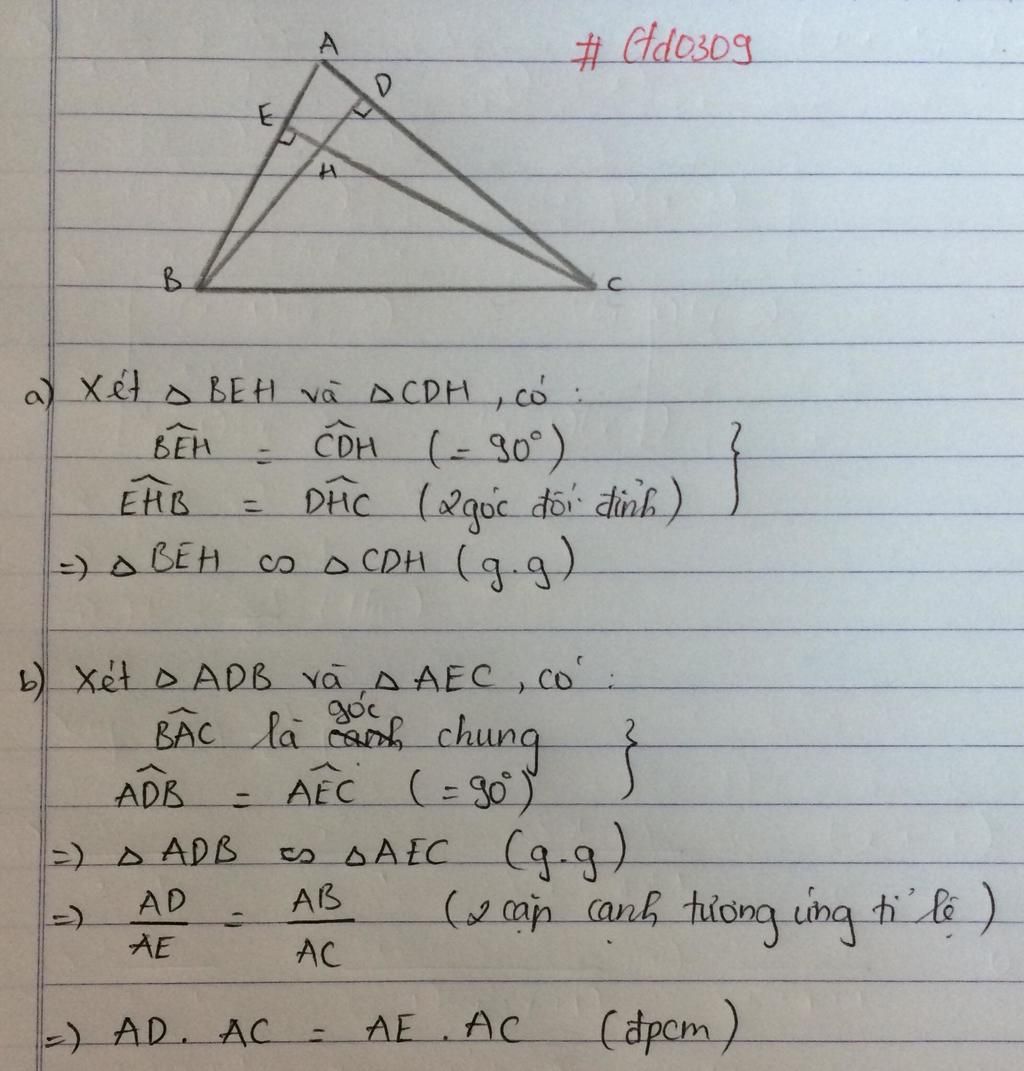 # Ctd0309
A
D
E
H
B
C
a) Xét △ BEH và △CDH , có :
$\widehat{BEH}$ = $\widehat{CDH}$ (= 90°)
$\widehat{EHB}$ = $\widehat{DHC}$ (2 góc đối đỉnh) }
=> △ BEH ∽ △ CDH (g.g)
b) Xét △ ADB và △ AEC , có :
$\widehat{BAC}$ là góc chung
$\widehat{ADB}$ = $\widehat{AEC}$ (= 90°) }
=> △ ADB ∽ △AEC (g.g)
=> $\frac{AD}{AE}$ = $\frac{AB}{AC}$ (2 cặp cạnh tương ứng tỉ lệ)
=> AD . AC = AE . AC (đpcm)